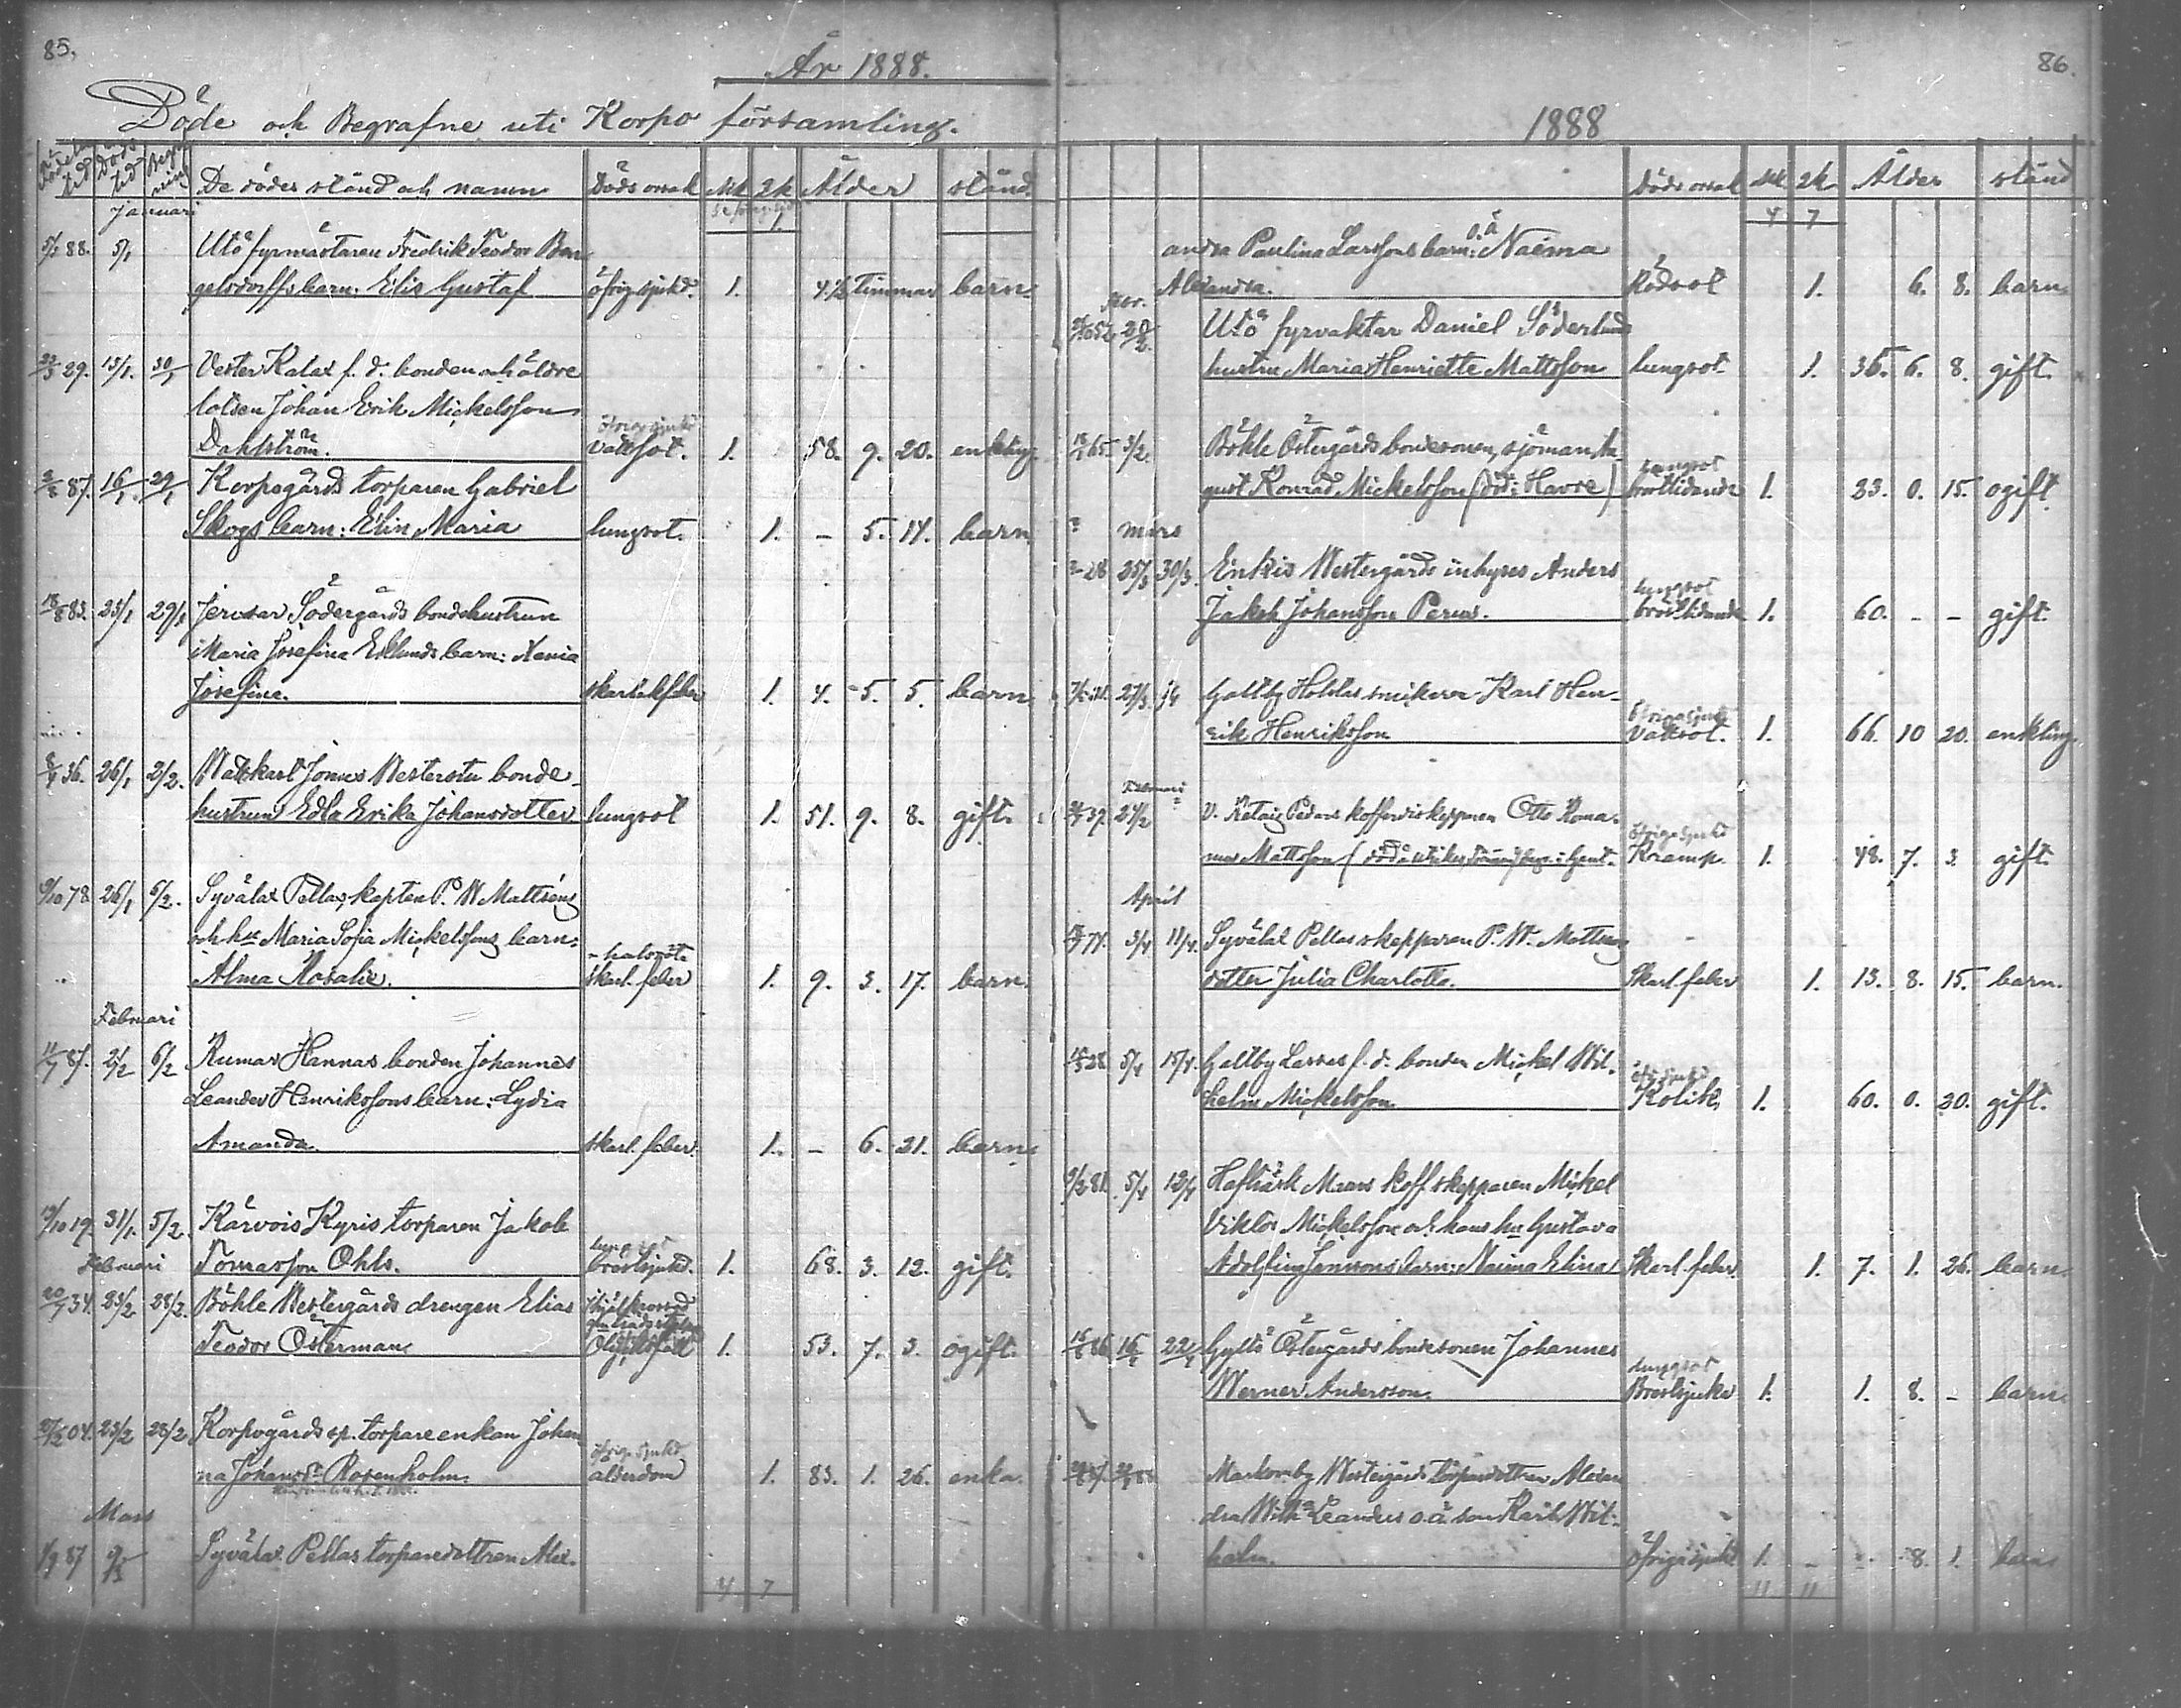 85.
År 1888.
Döde och Begrafne uti Korpo församling.
Födelse tid Döds tid Begrafning De dödes stånd och namn Döds orsak Mk 2k Ålder stånd
Januari
5/1 88. 5/1 Utö fyrmästaren Fredrik Teodor Ban-
gelsdorffs barn: Elis Gustaf öfrig sjukd. 1. 4 1/2 Timmar barn.
29. 15/1. 30/1 Vester Kalax f. d. bonden och äldre
lotsen Johan Erik Mickelsson
Dahlström. vattsot. 1. 58. 9. 20. enkling
87. 16/1. 29/1 Korpogårds torparen Gabriel
Skogs barn: Elin Maria lungsot. 1. – 5. 14. barn
18/8 83. 23/1 29/1 Jerusar Södergårds bondehustrun
Maria Josefina Edlunds barn: Xenia
Josefine. skarlakfeber 1. 4. 5. 5. barn
36. 26/1 2/2. Wattkast Jonus Westerstu bonde-
hustrun Edla Erika Johansdotter lungsot 1. 51. 9. 8. gift.
9/10 78 26/1 6/2. Syvälax Pellas, kapten P. W. Mattséns
och hu Maria Sofia Mickelssons barn:
Alma Rosalie. skarl. feber 1. 9. 3. 17. barn.
Februari
11/7 87. 2/2 6/2 Rumar Hannas bonden Johannes
Leander Henrikssons barn: Lydia
Amanda. skarl. feber. 1. – 6. 21. barn
19/10 19. 31/1. 5/2. Kärvois Kyris torparen Jakob
Februari Tomasson Ohls. lungsot bröstsjukd. 1. 68. 3. 12. gift.
20/7 34. 23/2 28/2. Böhle Westergårds drengen Elias
Teodor Österman Olycksfall 1. 53. 7. 3. ogift.
04. 23/2 28/2 Korpogårds sp. torpareenkan Johan-
na Johansdr Rosenholm. ålderdom 1. 83. 1. 26. enka.
Mars
1/7 87 9/3 Syvälax Pellas torparedottren Alex-
4 7
86.
1888
Döds orsak Mk 2k Ålder stånd
4 7
andra Paulina Larssons barn: o.ä. Naëma
Alexandra. Rödsot 1. 6. 8. barn
Utö fyrvaktar Daniel Söderlunds
hustru Maria Henriette Mattsson lungsot 1. 36. 6. 8. gift.
65 3/2. Böhle Östergårds bondesonen, sjöman Au-
gust Konrad Mickelsson (död i Havre) lungsot bröstlidande 1. 23. 0. 15. ogift
mars
28 25/3 30/3. Enkis Westergårds inhyses Anders
Jakob Johansson Perus. lungsot bröstlidande 1. 60. – – gift.
27/3. Galtby Holstas snickaren Karl Hen-
rik Henriksson vattsot. 1. 66. 10 20. enkling
Februari
39. 24/2 V. Retais Pedars kofferdiskepparen Otto Roma-
nus Mattsson Kramp. 1. 48. 7. 3. gift.
April
74. 3/4 11/4. Syvälax Pellas skepparen P. W. Mattsens
dotter Julia Charlotta. Skarl. feber 1. 13. 8. 15. barn.
15/3 28. 5/4 15/4. Galtby Lasses f. d. bonden Mickel Wil-
helm Mickelsson Kolik, 1. 60. 0. 20. gift.
9/2 81. 5/4 12/4 Hafträsk Maans koff. skepparen Mickel
Viktor Mickelsson och hans hu Gustava
Adolfina Jansons barn: Naima Elina Skarl. feber 1. 7. 1. 26. barn.
15/8 86 16/4 22/4 Gyltö Östergårds bondesonen Johannes
Werner Andersson. lungsot Bröstsjuka 1. 1. 8. – barn.
Markomby Westergårds torparedottren Alexan-
dra Leanders o.ä. son Karl Wil-
helm. öfriga sjukd. 1. – 8. 1. barn
11 11